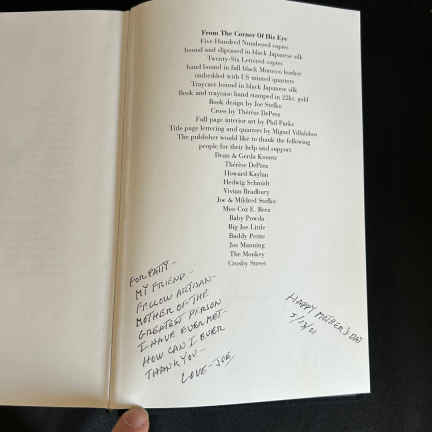 From The Corner Of His Eye
Five Hundred Numbered copies
bound and slipcased in black Japanese silk
Twenty-Six Lettered copies
hand bound in full black Morocco leather
embedded with US minted quarters
Traycase bound in black Japanese silk
Book and traycase hand stamped in 22kt. gold
Book design by Joe Stefko
Cross by Thérèse DePrez
Full page interior art by Phil Parks
Title page lettering and quarters by Miguel Villalobos
The publisher would like to thank the following
people for their help and support
Dean & Gerda Koontz
Thérèse DePrez
Howard Kaylan
Hedwig Schmidt
Vivian Bradbury
Joe & Mildred Stefko
Miss Cox E. Bera
Baby Powda
Big Jae Little
Buddy Petite
Joe Manning
The Monkey
Crosby Street
FOR PATTY-
MY FRIEND-
FELLOW ARTISAN-
MOTHER OF THE
GREATEST PERSON
I HAVE EVER MET-
HOW CAN I EVER
THANK YOU-
LOVE-JOE
HAPPY MOTHER'S DAY
5/13/01